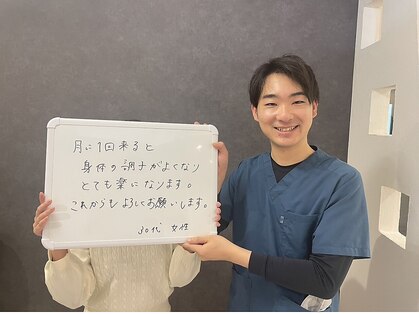 月に1回来ると
身体の調子がよくなり
とても楽になります。
これからもよろしくお願いします。
30代 女性